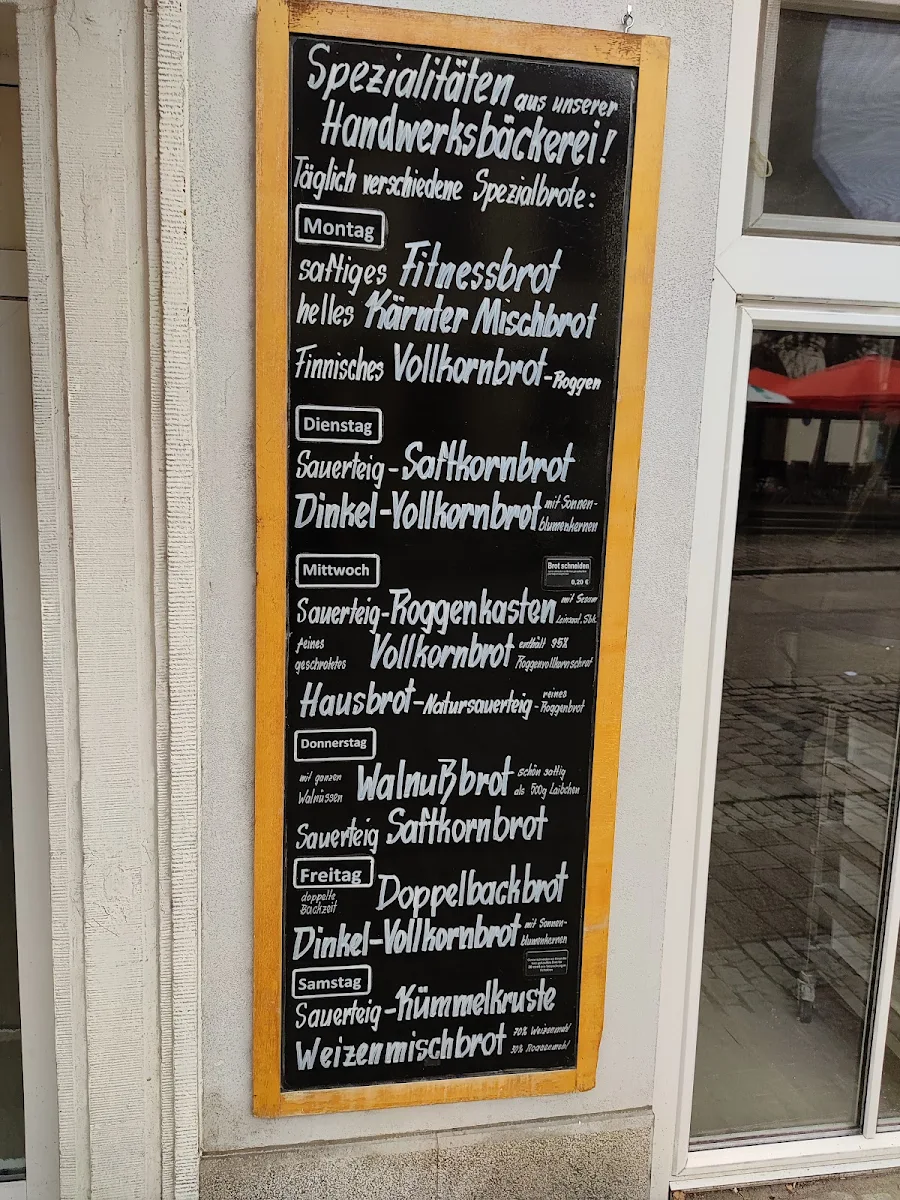 Spezialitäten aus unserer
Handwerksbäckerei!
Täglich verschiedene Spezialbrote:
Montag
saftiges Fitnessbrot
helles Kärnter Mischbrot
Finnisches Vollkornbrot-Roggen
Dienstag
Sauerteig-Saftkornbrot
Dinkel-Vollkornbrot mit Sonnen-
blumenkernen
Mittwoch
Brot schneiden
0,20 €
Sauerteig-Roggenkasten mit Sesam
Leinsaat, Sbk.
feines
geschrotetes Vollkornbrot enthält 95%
Roggenvollkornschrot
Hausbrot-Natursauerteig-reines
Roggenbrot
Donnerstag
mit ganzen
Walnüssen Walnußbrot schön saftig
als 500g Laibchen
Sauerteig Saftkornbrot
Freitag
doppelte
Backzeit Doppelbackbrot
Dinkel-Vollkornbrot mit Sonnen-
blumenkernen
Samstag
Sauerteig-Kümmelkruste
Weizenmischbrot 70% Weizenmehl
30% Roggenmehl